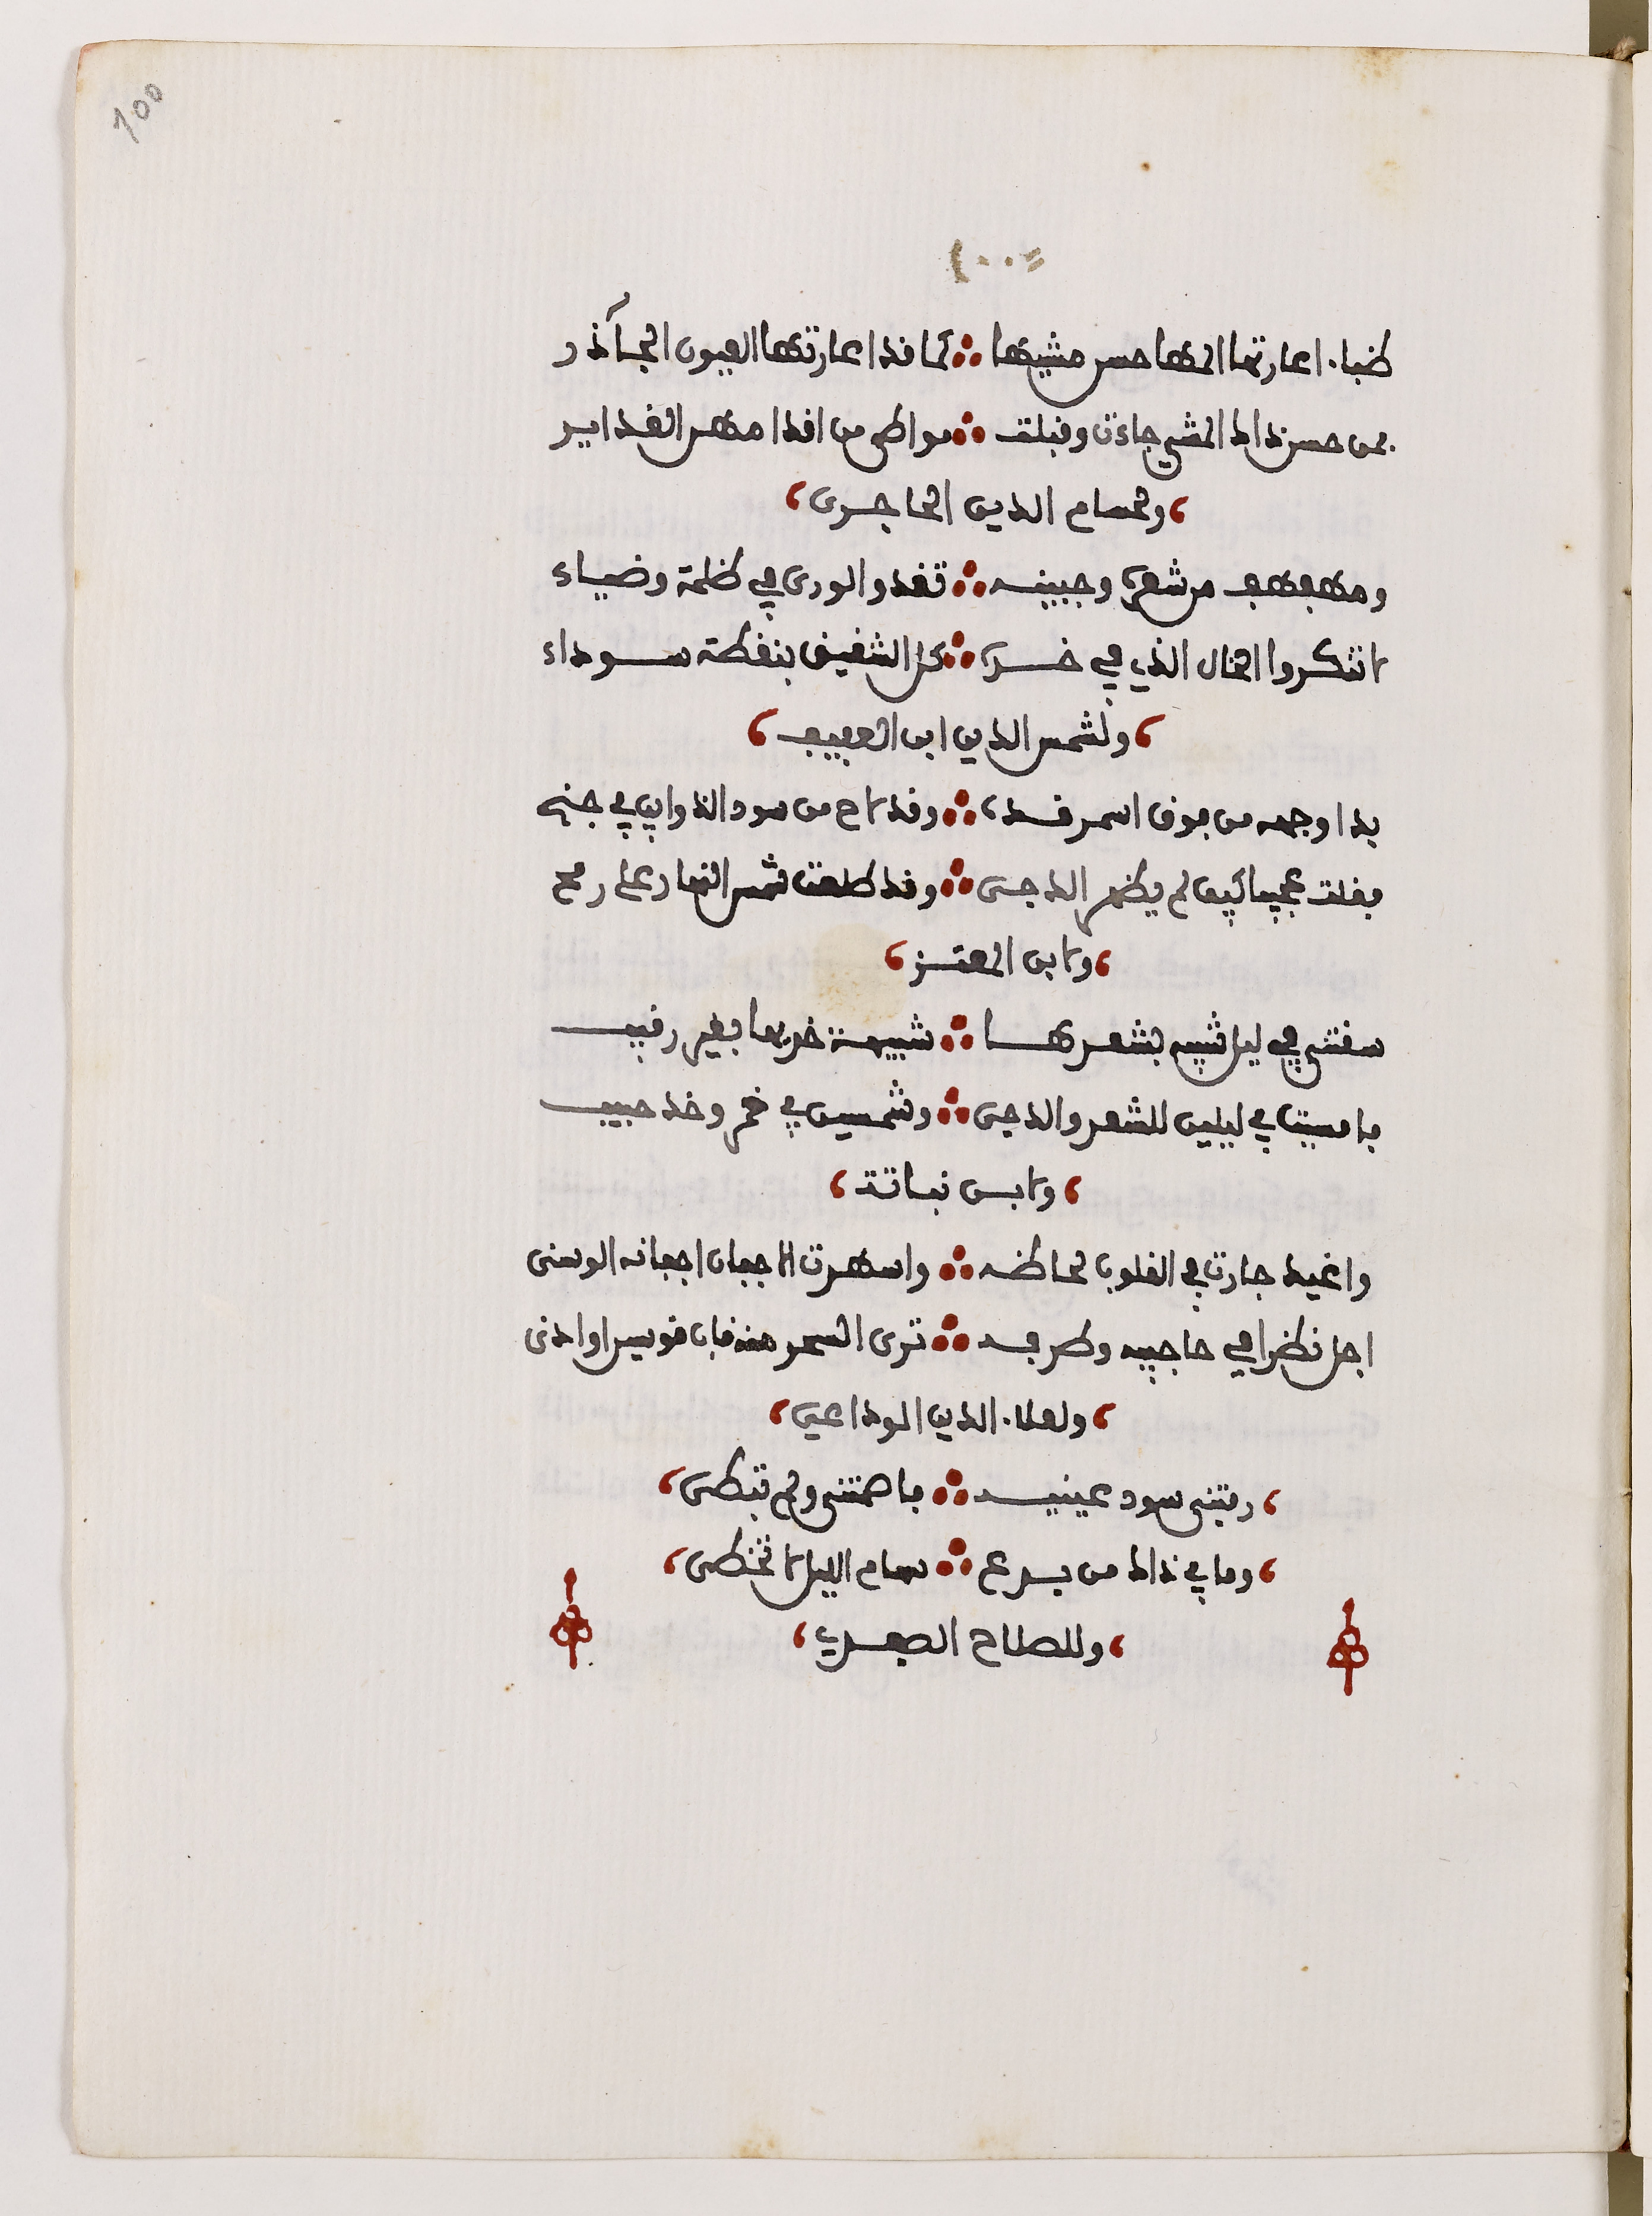 100
١٠٠
ظباء اعارتها المها حسن مشيها ∴ كما قد اعارتها العيون الجآذر
فمن حسن ذاك المشي جاءت وقبلت ∴ مواطي من اقدامهن الغداير
، ولحسام الدين الحاجرى ،
ومهفهف من شعره وجبينه ∴ تغدو الورى في ظلمة وضياء
لا تنكروا الخال الذي في خده ∴ كل الشقيق بنقطة سوداء
، ولشمس الدين ابن العفيف ،
بدا وجهه من فوق اسمر قده ∴ وقد لاح من سود الذوايب في جنح
فقلت عجيبا كيف لم يظهر الدجى ∴ وقد طلعت شمس النهار على رمح
، ولابن المعتز ،
سقتني في ليل شبيه بشعرها ∴ شبيهة خديها بغير رقيب
فامسيت في ليلين للشعر والدجى ∴ وشمسين في خمر وخد حبيب
، ولابن نباتة ،
واغيد جارت في القلوب لحاظه ∴ واسهرت الاجفان اجفانه الوسنى
اجل نظرا في حاجبيه وطرفه ∴ ترى السحر منه قاب قوسين او ادنى
، ولعلاء الدين الوداعي ،
، رمتني سود عينيه ∴ فاصمتني ولم تبطى ،
، وما في ذاك من بدع ∴ سهام الليل لا تخطى ،
، وللصلاح الصفدي ،